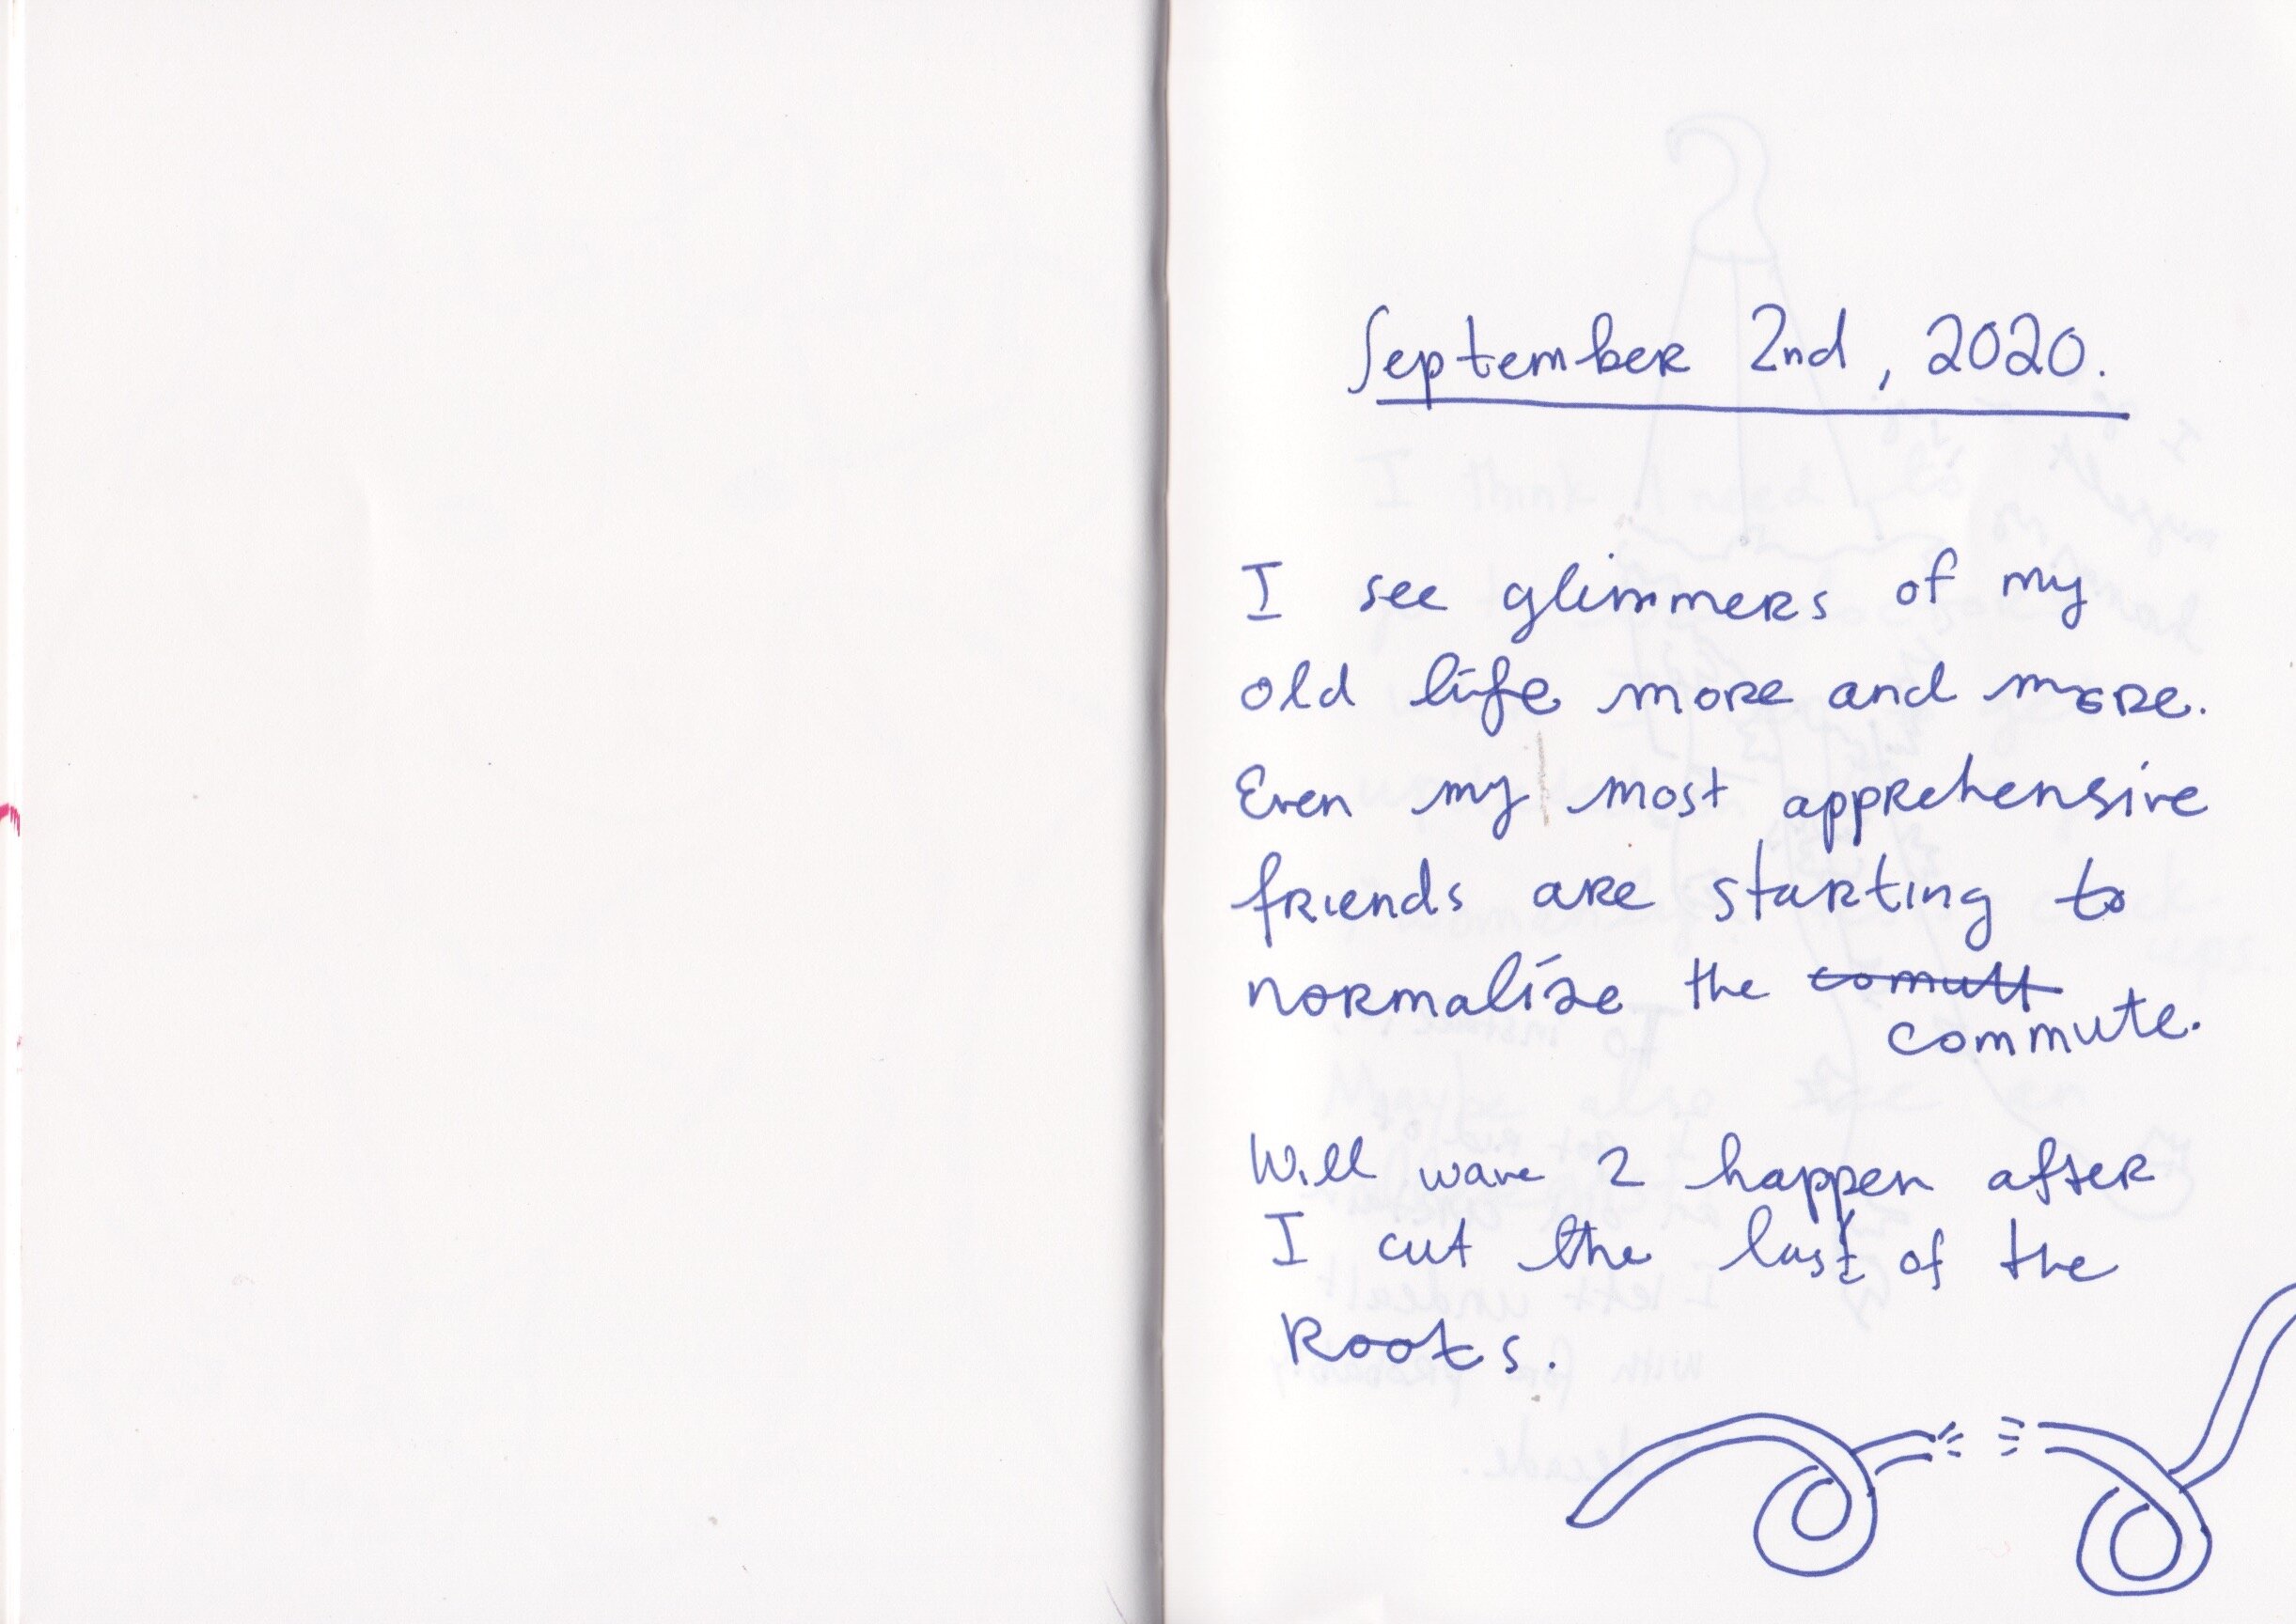 September 2nd, 2020.
I see glimmers of my
old life more and more.
Even my most apprehensive
friends are starting to
normalize the comutt
commute.
Will wave 2 happen after
I cut the last of the
Roots.